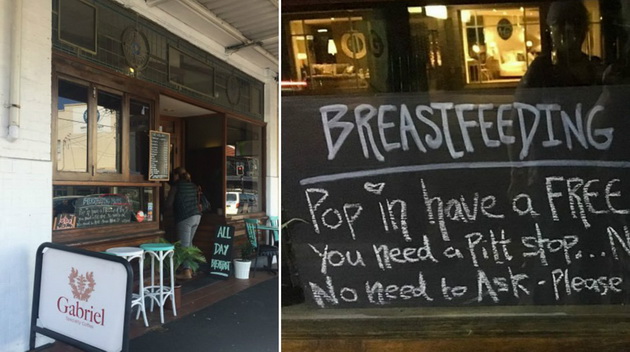 BREASTFEEDING
Gabriel
ALL
DAY
BREAKFAST
BREASTFEEDING
Pop in have a FREE
You need a Pitt stop... N
No need to Ask - Please